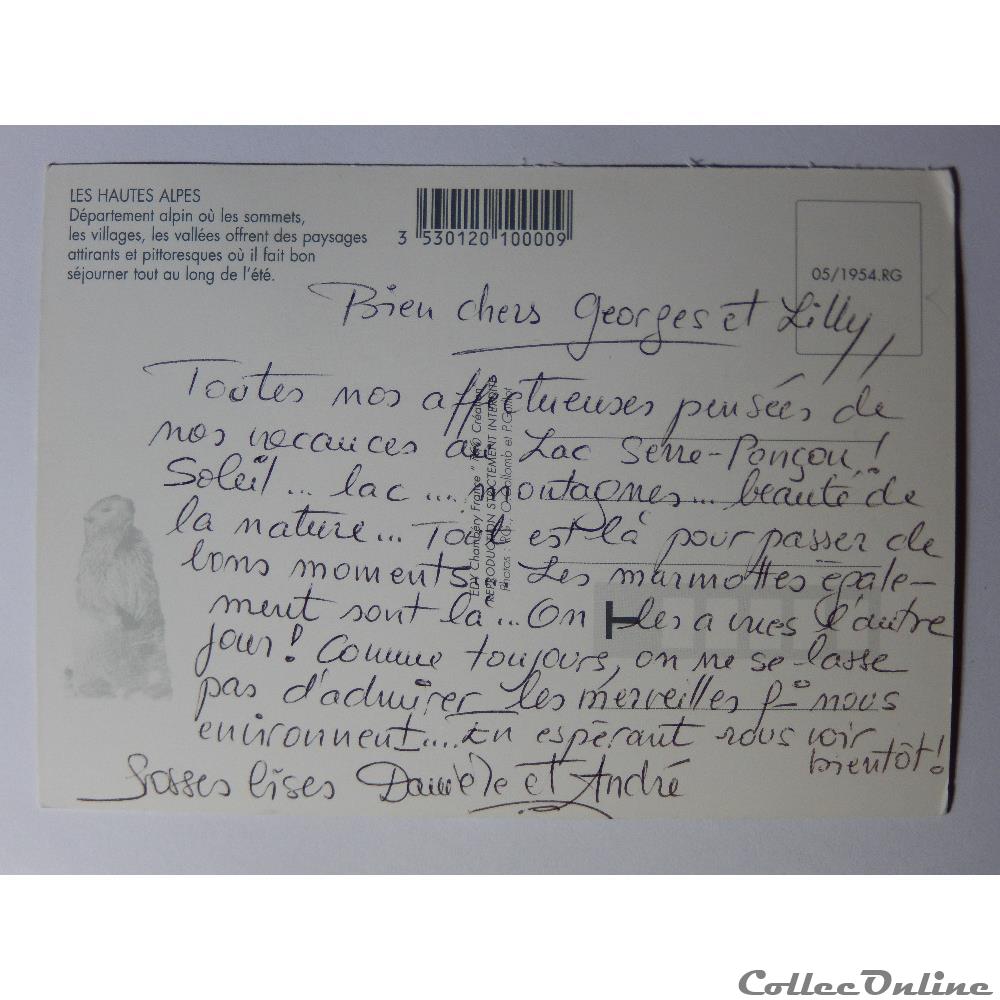 LES HAUTES ALPES
Département alpin où les sommets,
les villages, les vallées offrent des paysages
attirants et pittoresques où il fait bon
séjourner tout au long de l'été.
3 530120 100009
05/1954.RG
Bien chers Georges et Lilly,
Toutes nos affectueuses pensées de
nos vacances au Lac Serre-Ponçon!
Soleil... lac... montagnes... beauté de
la nature... Tout est là pour passer de
bons moments. Les marmottes égale-
ment sont là... On les a vues l'autre
jour! Comme toujours, on ne se lasse
pas d'admirer les merveilles q- nous
environnent.... En espérant vous voir
bientôt!
Grosses bises Danièle et André
EDY Chambéry France "PRO Création
REPRODUCTION STRICTEMENT INTERDITE
Photos : R.G., O. Collomb et P.
CollecOnline